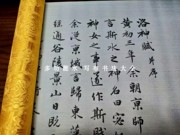 洛神賦并序
黃初三年余朝京師
言斯水之神名曰宓
神女之事遂作斯
余從京域言歸東藩
經通谷陵景山日既